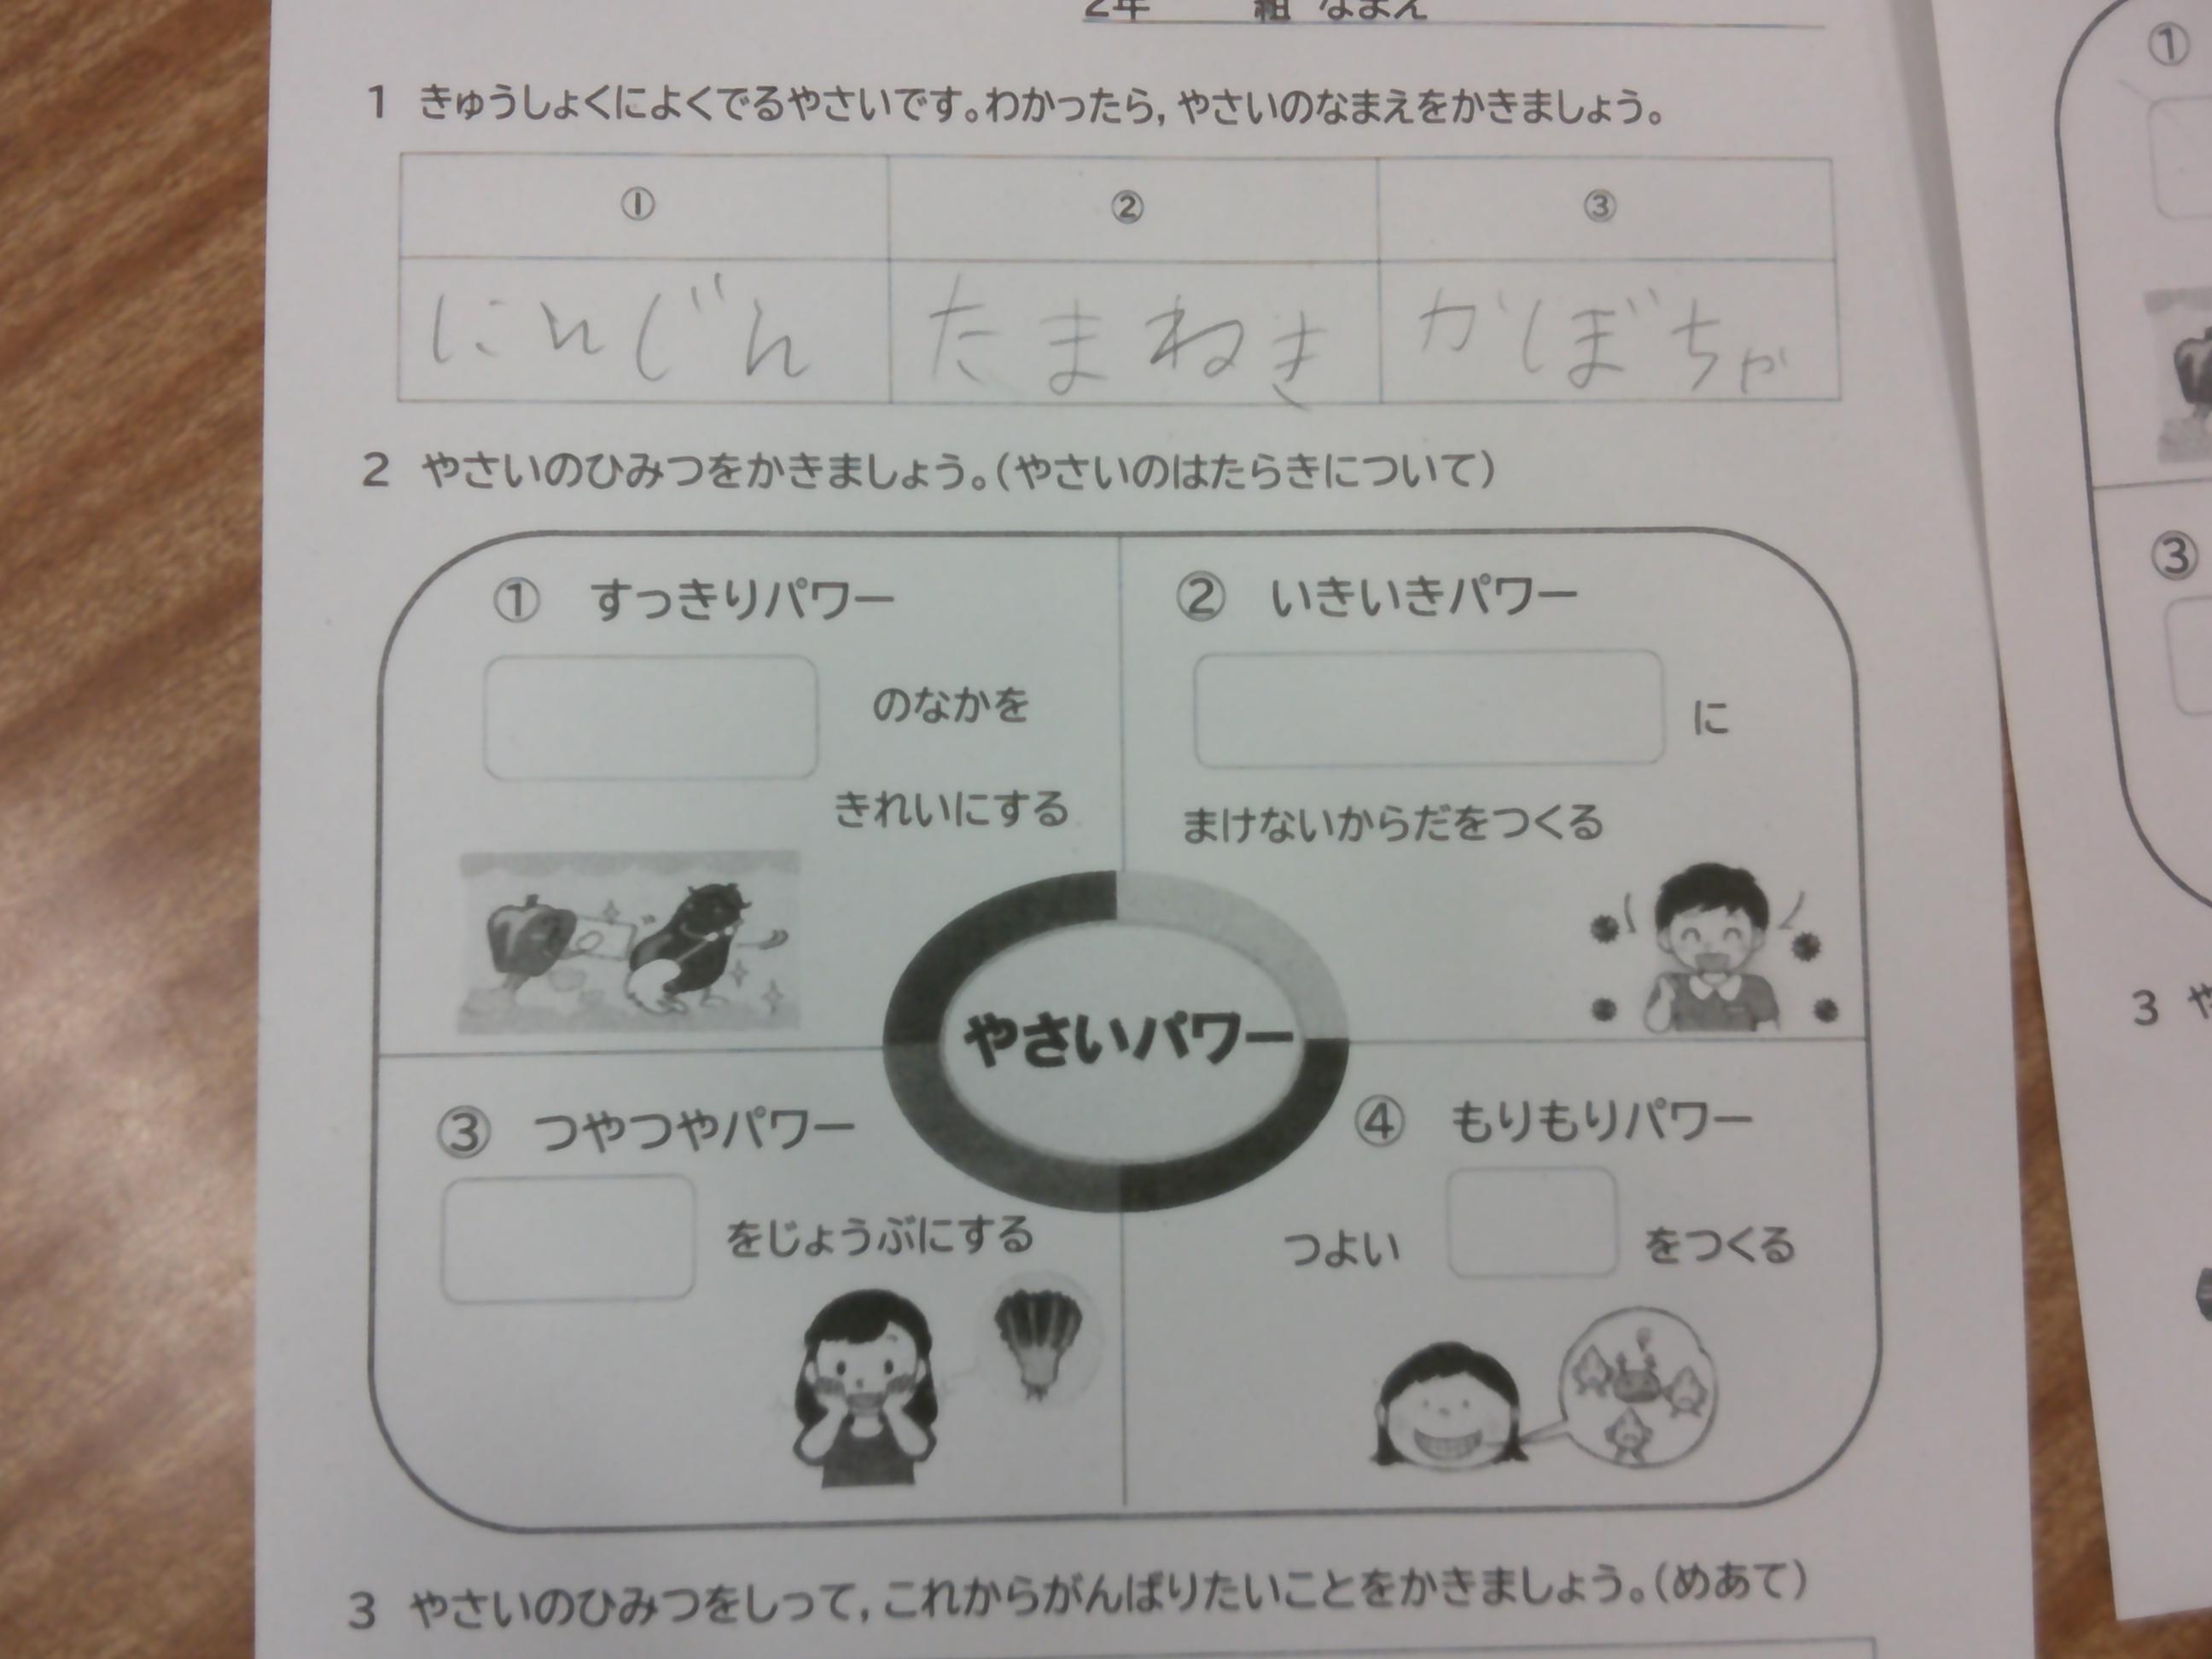 2年 組 なまえ
1 きゅうしょくによくでるやさいです。わかったら，やさいのなまえをかきましょう。
① ② ③
にんじん たまねき かぼちゃ
2 やさいのひみつをかきましょう。（やさいのはたらきについて）
① すっきりパワー
のなかを
きれいにする
② いきいきパワー
に
まけないからだをつくる
やさいパワー
③ つやつやパワー
をじょうぶにする
④ もりもりパワー
つよい をつくる
3 やさいのひみつをしって，これからがんばりたいことをかきましょう。（めあて）
①
③
3 や